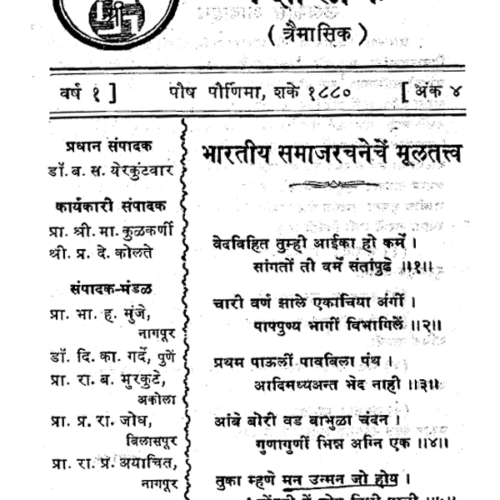 श्री
( त्रैमासिक )
वर्ष १ ]
पौष पौर्णिमा, शके १८८०
[ अंक ४
प्रधान संपादक
डॉ. ब. स. येरकुंटवार
कार्यकारी संपादक
प्रा. श्री. मा. कुळकर्णी
श्री. प्र. दे. कोलते
संपादक-मंडळ
प्रा. भा. ह. मुंजे,
नागपूर
डॉ. दि. का. गर्दे, पुणें
प्रा. रा. ब. मुरकुटे,
अकोला
प्रा. प्र. रा. जोध,
बिलासपूर
प्रा. रा. प्र. अयाचित,
नागपूर
भारतीय समाजरचनेचें मूलतत्त्व
वेदविहित तुम्ही आईका हो कर्में ।
सांगतों तीं वर्में संतांपुढे ॥१॥
चारी वर्ण झाले एकाचिया अंगीं ।
पापपुण्य भागीं विभागिलें ॥२॥
प्रथम पाऊलीं पावविला पंथ ।
आदिमध्यअन्त भेद नाही ॥३॥
आंबे बोरी वड बाभुळा चंदन ।
गुणागुणीं भिन्न अग्नि एक ॥४॥
तुका म्हणे मन उन्मन जों होय ।